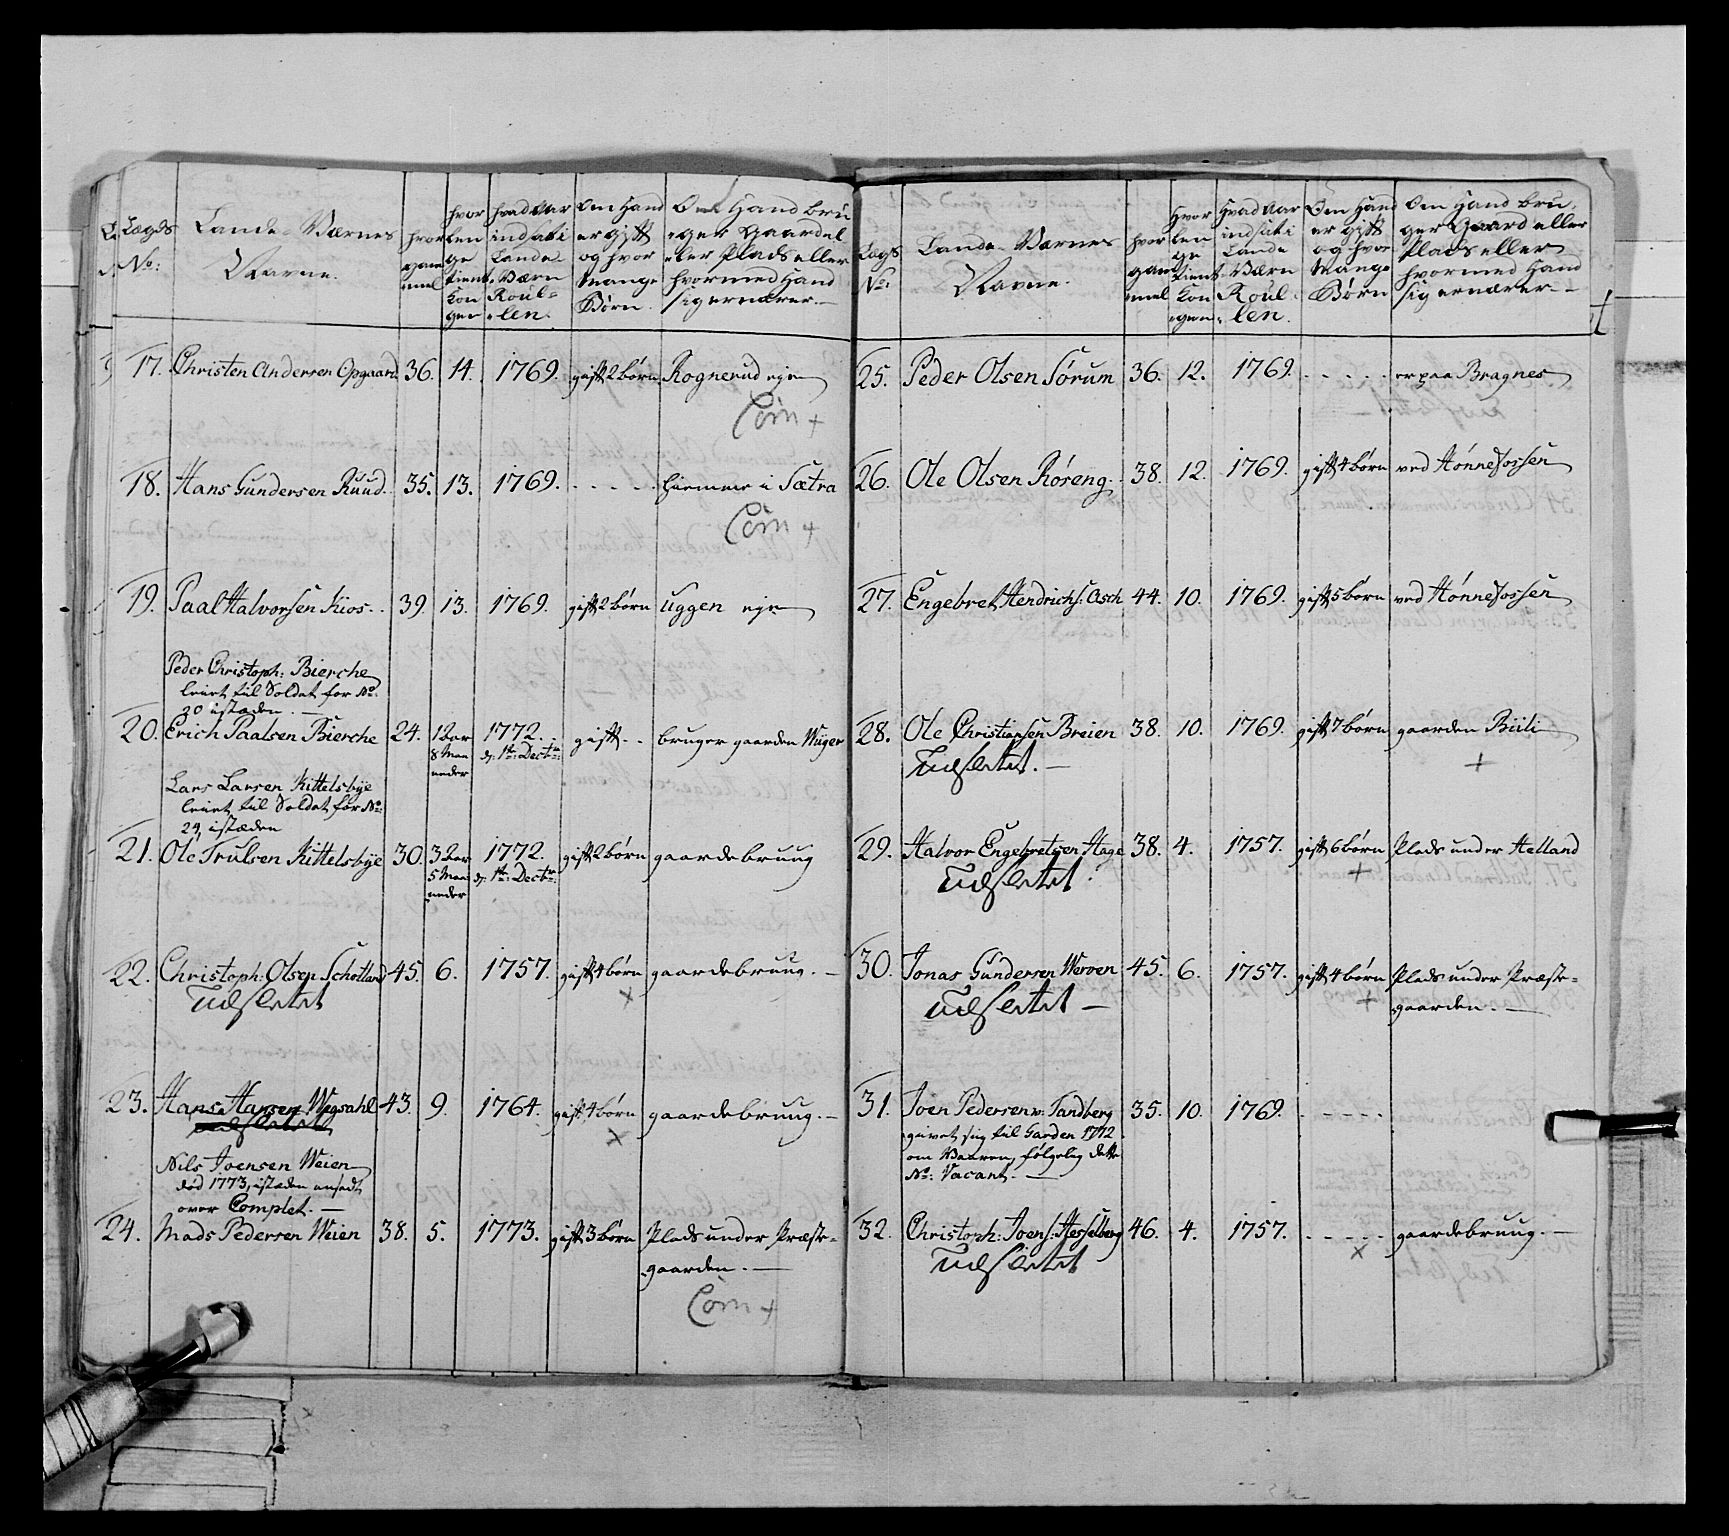 Lægds No: Lande-Værnes Navne. hvor gammel hvor lenge tient Kongen hvad Aar indsatt i Lande-Værn Roul-len. Om Hand er gift og hvor Mange Børn. Om Hand bruger Gaard eller Plads eller hvormed Hand sig ernærer.
17. Christen Andersen Opgaard 36. 14. 1769. gift 2 børn Rognerud eje
Com +
18. Hans Gundersen Ruud 35. 13. 1769. - - - - - hiemme i Sætra
Com +
19. Paal Halvorsen Kios 39. 13. 1769. gift 2 børn Uggen eje
Peder Christoph: Bierche
leveret til Soldat for No:
20 isteden. —
20. Erich Paalsen Bierche 24. 1 Aar 8 Maaneder 1772. d: 1te Decbr: gift - - bruger gaarden Wiiger
Lars Larsen Kittelsbye
leveret til Soldat for No:
24, isteden
21. Ole Trulsen Kittelsbye 30. 3 Aar 5 Maaneder 1772. d: 1te Decbr: gift 2 børn gaardebruug
22. Christoph: Olsen Schotland 45. 6. 1757. gift 4 børn gaardebruug. —
Udslettet x
23. Hans Hansen Wegsahl 43. 9. 1764. gift 4 børn gaardebruug. —
Udslettet x
Nils Joensen Weien
død 1773, isteden ansadt
over Complet. —
24. Mads Pedersen Weien 38. 5. 1773. gift 3 børn Plads under Præste-
gaarden. —
Com +
Lægds No: Lande-Værnes Navne. hvor gammel Hvor lenge tient Kongen Hvad Aar indsatt i Lande Værn Roul-len. Om Hand er gift og hvor Mange Børn Om Hand bruger Gaard eller Plads eller hvormed Hand sig ernærer —
25. Peder Olsen Sørum 36. 12. 1769. - - - - - er paa Bragnes
26. Ole Olsen Røseng 38. 12. 1769. gift 4 børn ved Hønnefossen
27. Engebret Hendrichs: Asch 44. 10. 1769. gift 5 børn ved Hønnefossen
28. Ole Christiansen Breien 38. 10. 1769. gift 7 børn gaarden Biili
Udslettet. — +
29. Halvor Engebretsen Hage 38. 4. 1757. gift 6 børn Plads under Helland
Udslettet +
30. Jonas Gundersen Werven 45. 6. 1757. gift 4 børn Plads under Præste-
Udslettet — + gaarden. —
31. Joen Pedersen v: Tandberg 35. 10. 1769. - - - -
givet sig til Garden 1772
om Vaaren, følgelig dette
No: Vacant. —
32. Christoph: Joens: Hesselberg 46. 4. 1757. - - - - - gaardebruug. —
Udslettet x